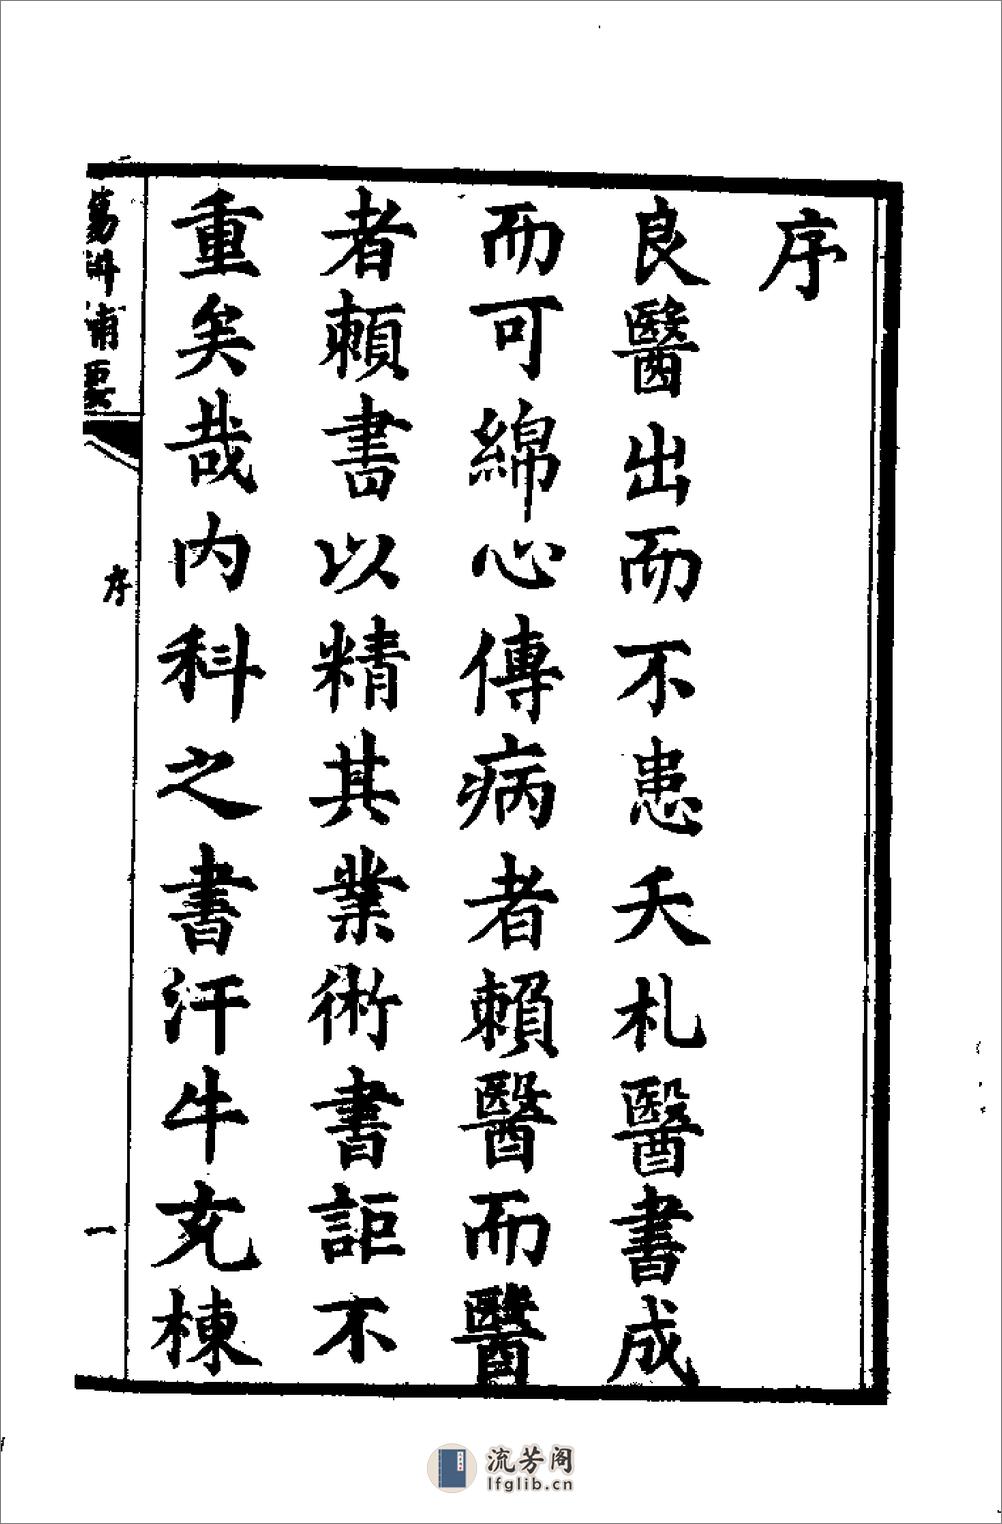 序
良醫出而不患夭札醫書成
而可綿心傳病者賴醫而醫
者賴書以精其業術書詎不
重矣哉內科之書汗牛充棟
瘍科補要
序
一
流芳阁
lfglib.cn